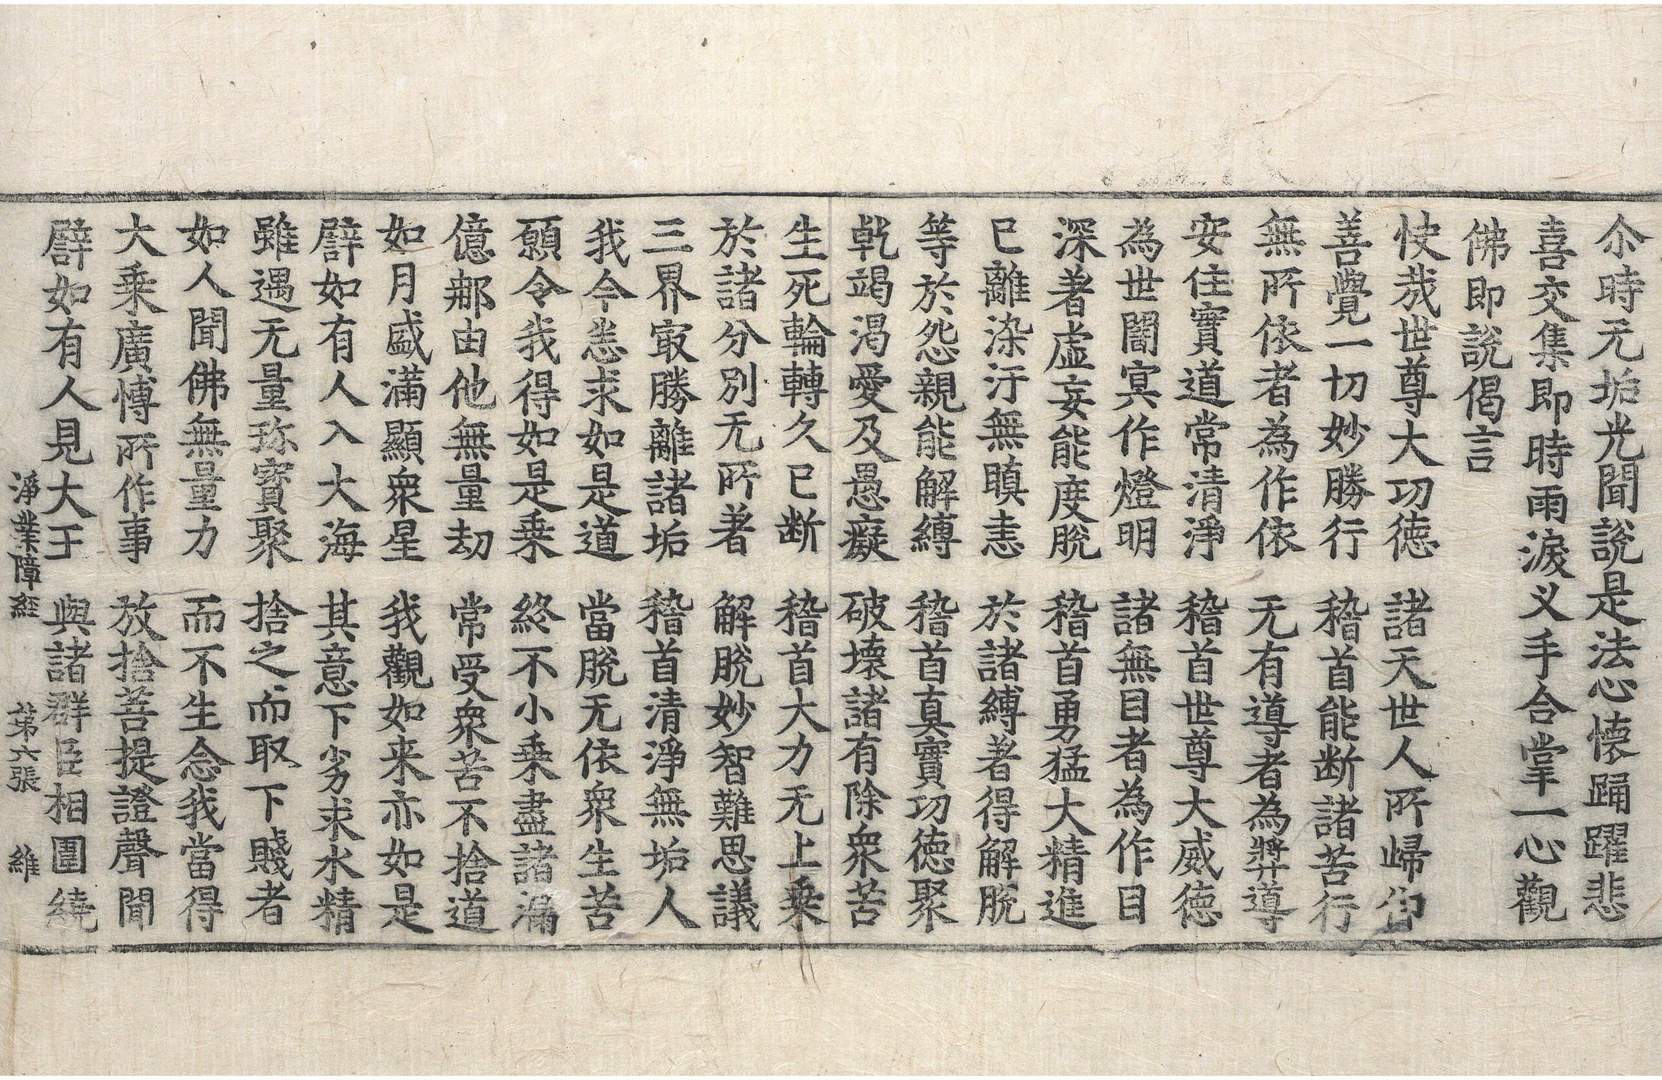 尒時无垢光聞說是法心懷踊躍悲
喜交集即時雨淚义手合掌一心觀
佛即說偈言
快㢤世尊大功德　諸天世人所歸仰
善覺一切妙勝行　稽首能断諸苦行
無所依者為作依　无有導者為辦導
安住實道常清淨　稽首世尊大威德
為世闇冥作燈明　諸無目者為作目
深著虛妄能度脫　稽首勇猛大精進
已離染汙無瞋恚　於諸縛著得解脫
等於怨親能解縛　稽首真實功德聚
乹竭渴愛及愚癡　破壞諸有除衆苦
生死輪轉久已断　稽首大力无上乗
於諸分別无所著　解脫妙智難思議
三界㝡勝離諸垢　稽首清淨無垢人
我今悉求如是道　當脫无依衆生苦
願令我得如是乗　終不小乗盡諸漏
億那由他無量劫　常受衆苦不捨道
如月盛滿顯衆星　我觀如来亦如是
譬如有人入大海　其意下劣求水精
雖遇无量珎寳聚　捨之而取下賤者
如人聞佛無量力　而不生念我當得
大乗廣愽所作事　放捨菩提證聲聞
譬如有人見大王　與諸群臣相圍繞
淨業障經　第六張　維